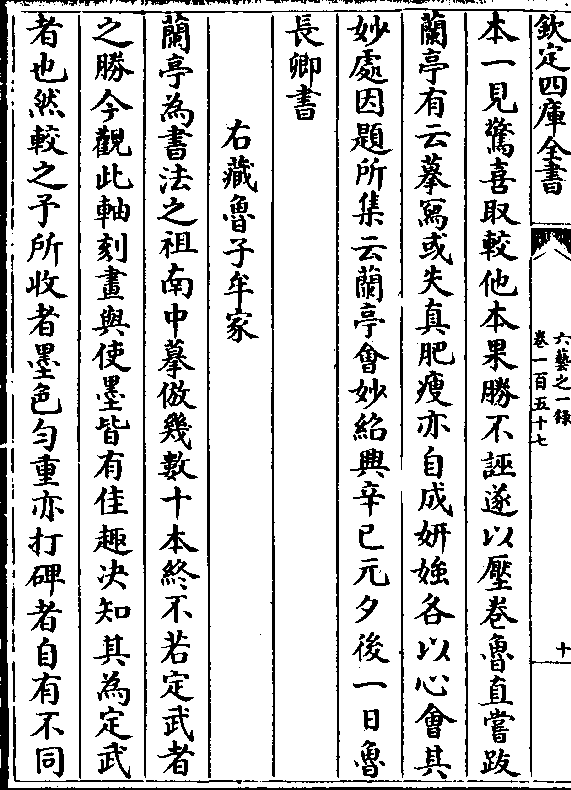 欽定四庫全書
六藝之一錄
卷一百五十七
十
本一見驚喜取較他本果勝不誣遂以壓卷魯直嘗跋
蘭亭有云摹寫或失真肥瘦亦自成妍媸各以心會其
妙處因題所集云蘭亭會妙紹興辛巳元夕後一日魯
長卿書
右藏魯子牟家
蘭亭為書法之祖南中摹倣幾數十本終不若定武者
之勝今觀此軸刻畫與使墨皆有佳趣决知其為定武
者也然較之予所收者墨色勻重亦打碑者自有不同